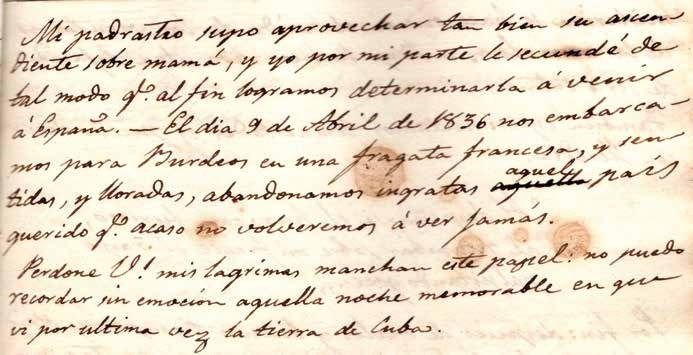 Mi padrastro supo aprovechar tan bien su ascen
diente sobre mamá, y yo por mi parte le secundé de
tal modo q.e al fin logramos determinarla á venir
á España. — El dia 9 de Abril de 1836 nos embarca-
mos para Burdeos en una fragata francesa, y sen
tidas, y lloradas, abandonamos ingratas aquel país
querido q.e acaso no volveremos á ver jamás.
Perdone V.! mis lagrimas manchan este papel: no puedo
recordar sin emoción aquella noche memorable en que
vi por ultima vez la tierra de Cuba.